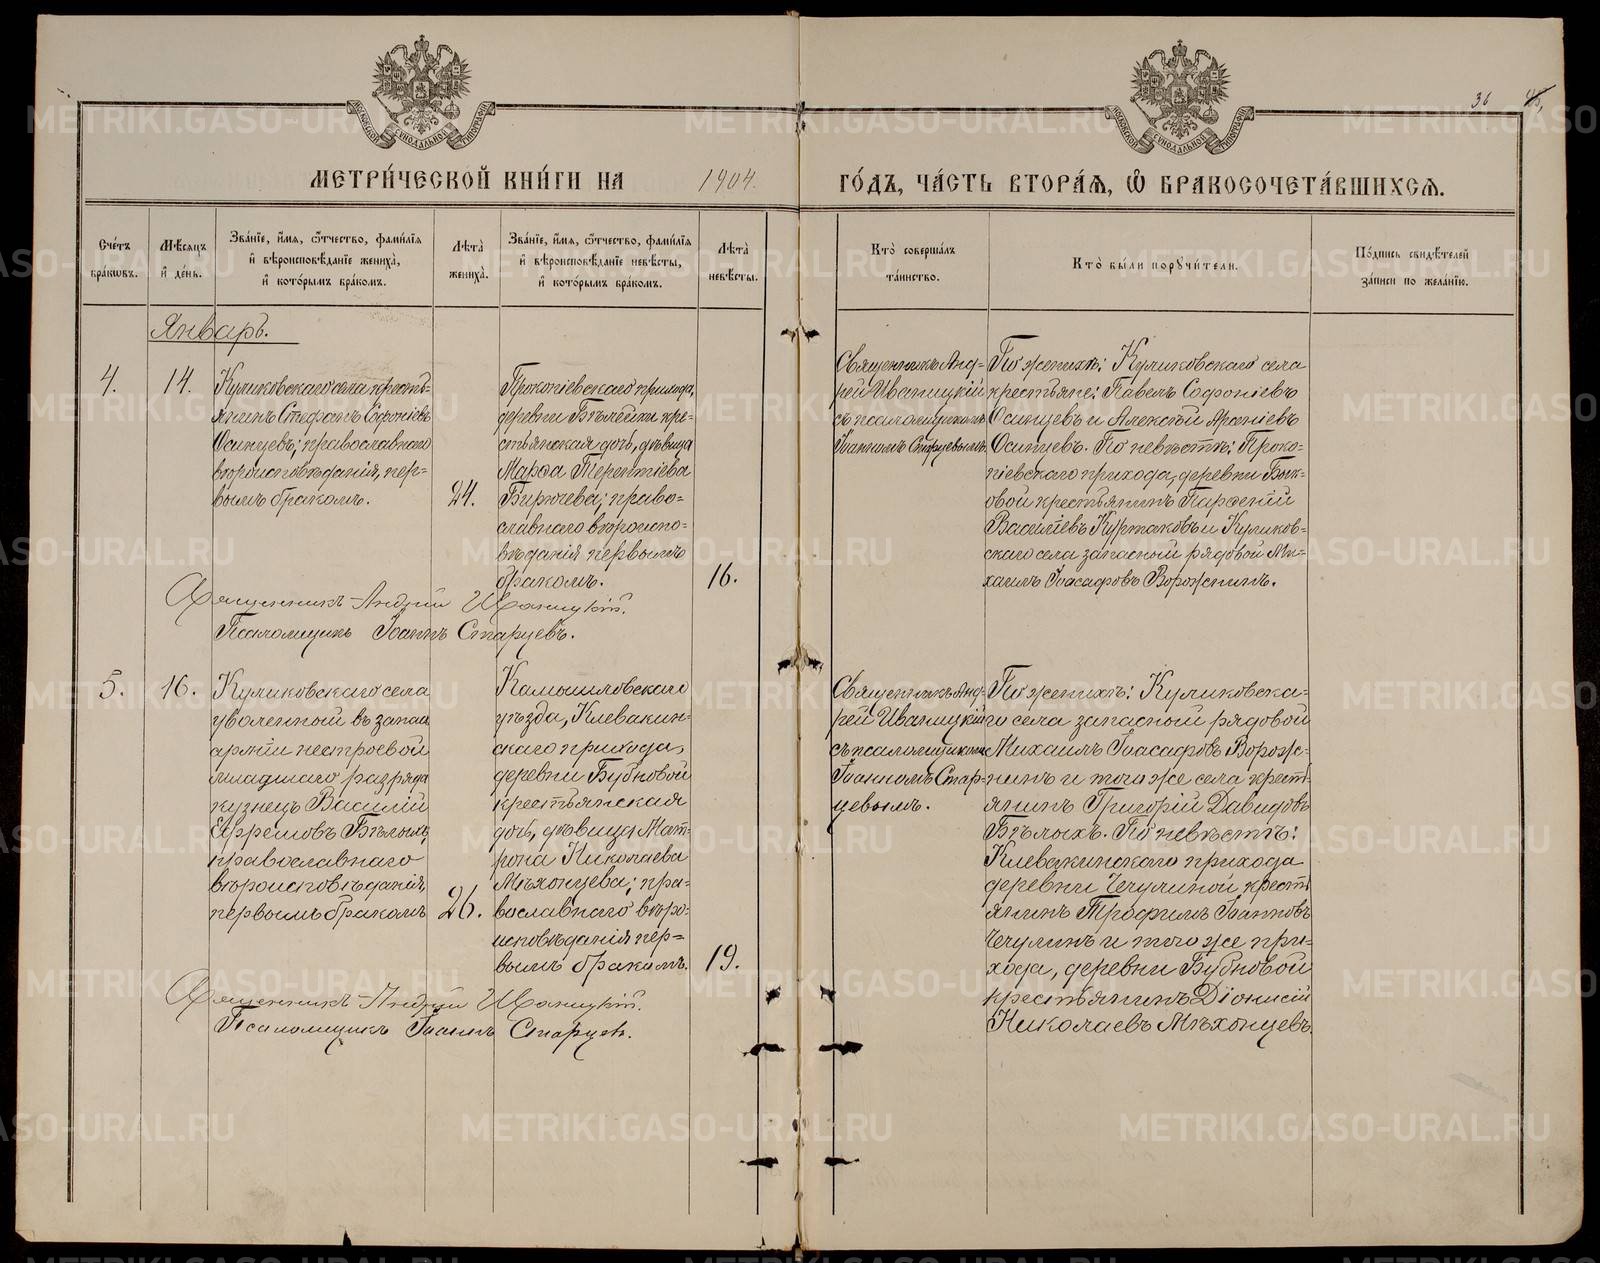 МОСКОВСКОЙ СѴНОДАЛЬНОЙ ТИПОГРАФІИ
МОСКОВСКОЙ СѴНОДАЛЬНОЙ ТИПОГРАФІИ
36
МЕТРИ́ЧЕСКОЙ КНИ́ГИ НА 1904. ГО́ДЪ, ЧА́СТЬ ВТОРА́Ѧ, Ѽ БРАКОСОЧЕТА́ВШИХСѦ.
Сче́тъ бра́кѡвъ.
Мѣ́сѧцъ и҆ де́нь.
Зва́нїе, и҆́мѧ, ѻ҆́тчество, фами́лїѧ и҆ вѣроисповѣ́данїе жениха̀, и҆ кото́рымъ бра́комъ.
Лѣ́та̀ жениха̀.
Зва́нїе, и҆́мѧ, ѻ҆́тчество, фами́лїѧ и҆ вѣроисповѣ́данїе невѣ́сты, и҆ кото́рымъ бра́комъ.
Лѣ́та̀ невѣ́сты.
Кто̀ соверша́лъ та́инство.
Кто̀ бы́ли порꙋчи́тели.
По́дпись свидѣ́телей за́писи по жела́нїю.
Январь.
4.
14.
Куликовскаго села кресть-
янинъ Стефанъ Софоніевъ
Осинцевъ; православнаго
вѣроисповѣданія, пер-
вымъ бракомъ.
24.
Прокопіевскаго прихода,
деревни Бѣлейки кре-
стьянская дочь, дѣвица
Марѳа Терентіева
Бирючева; право-
славнаго вѣроиспо-
вѣданія первымъ
бракомъ.
16.
Священникъ Анд-
рей Иваницкій
съ псаломщикомъ
Іоанномъ Старцевымъ.
По женихѣ: Куликовскаго села
крестьяне: Павелъ Софоніевъ
Осинцевъ и Алексѣй Арсеніевъ
Осинцевъ. По невѣстѣ: Проко-
піевскаго прихода, деревни Бык-
овой крестьянинъ Парѳеній
Василіевъ Куртаковъ и Куликов-
скаго села запасный рядовой Ми-
хаилъ Іоасафовъ Ворожнинъ.
Священникъ Андрей Иваницкій.
Псаломщикъ Іоаннъ Старцевъ.
5.
16.
Куликовскаго села
уволенный въ запасъ
арміи нестроевой
младшаго разряда
кузнецъ Василій
Ефремовъ Бѣлыхъ,
православнаго
вѣроисповѣданія,
первымъ бракомъ
26.
Камышловскаго
уѣзда, Клевакин-
скаго прихода,
деревни Бубновой
крестьянская
дочь, дѣвица Мат-
рона Николаева
Мѣхонцева; пра-
вославнаго вѣро-
исповѣданія пер-
вымъ бракомъ.
19.
Священникъ Анд-
рей Иваницкій
съ псаломщикомъ
Іоанномъ Стар-
цевымъ.
По женихѣ: Куликовска-
го села запасный рядовой
Михаилъ Іоасафовъ Ворож-
нинъ и того же села крестъ-
янинъ Григорій Давидовъ
Бѣлыхъ. По невѣстѣ:
Клевакинскаго прихода
деревни Чечулиной крестъ-
янинъ Трофимъ Іоанновъ
Чечулинъ и того же при-
хода, деревни Бубновой
крестьянинъ Діонисій
Николаевъ Мѣхонцевъ.
Священникъ Андрей Иваницкій.
Псаломщикъ Іоаннъ Старцевъ.
METRIKI.GASO-URAL.RU